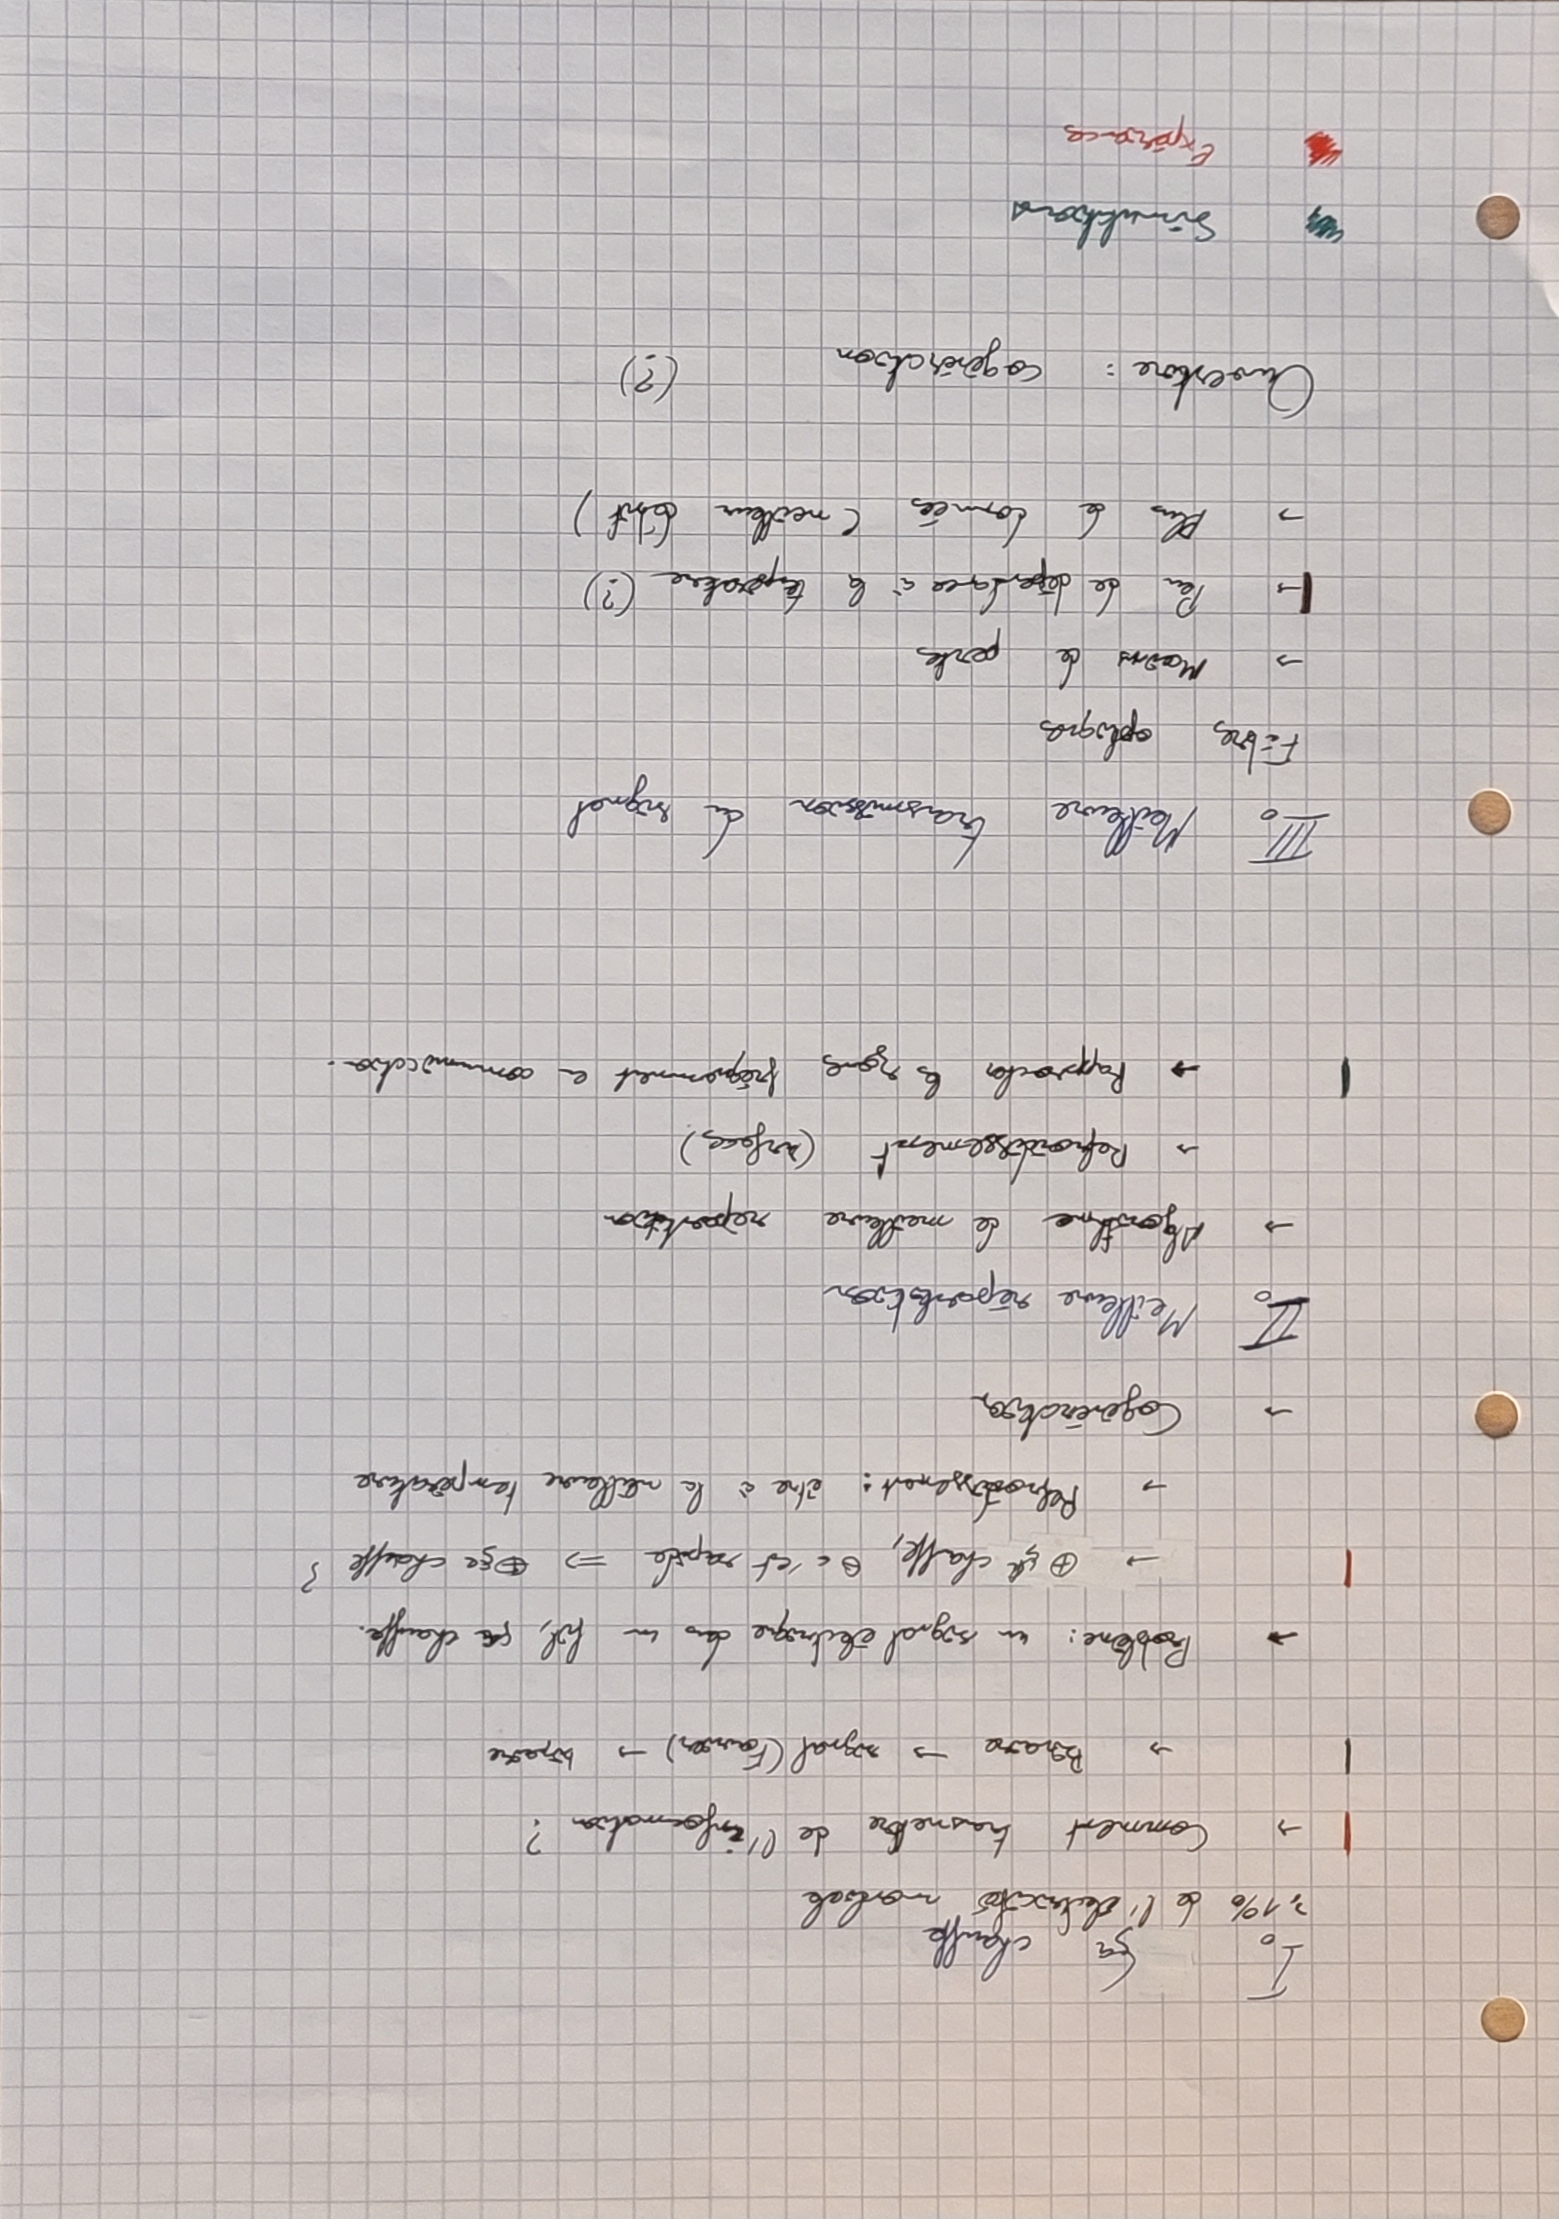 I. Ça chauffe
≥1% de l'électricité mondiale
→ Comment transmettre de l'information ?
→ Binaire → signal (Fourier) → binaire
→ Problème : un signal électrique dans un fil, ça chauffe.
→ ⊕ ça chauffe, ⊖ c'est rapide ⇒ ⊕ ça chauffe ?
→ Refroidissement : être à la meilleure température
→ Cogénération
II. Meilleure répartition
→ Algorithme de meilleure répartition
→ Refroidissement (surfaces)
→ Rapprocher les zones fréquemment en communication.
III. Meilleure transmission du signal
Fibres optiques
→ Moins de pertes
→ Peu de dépendance à la température (?)
→ Plus de données (meilleur débit)
Ouverture : cogénération (?)
Simulations
Expériences